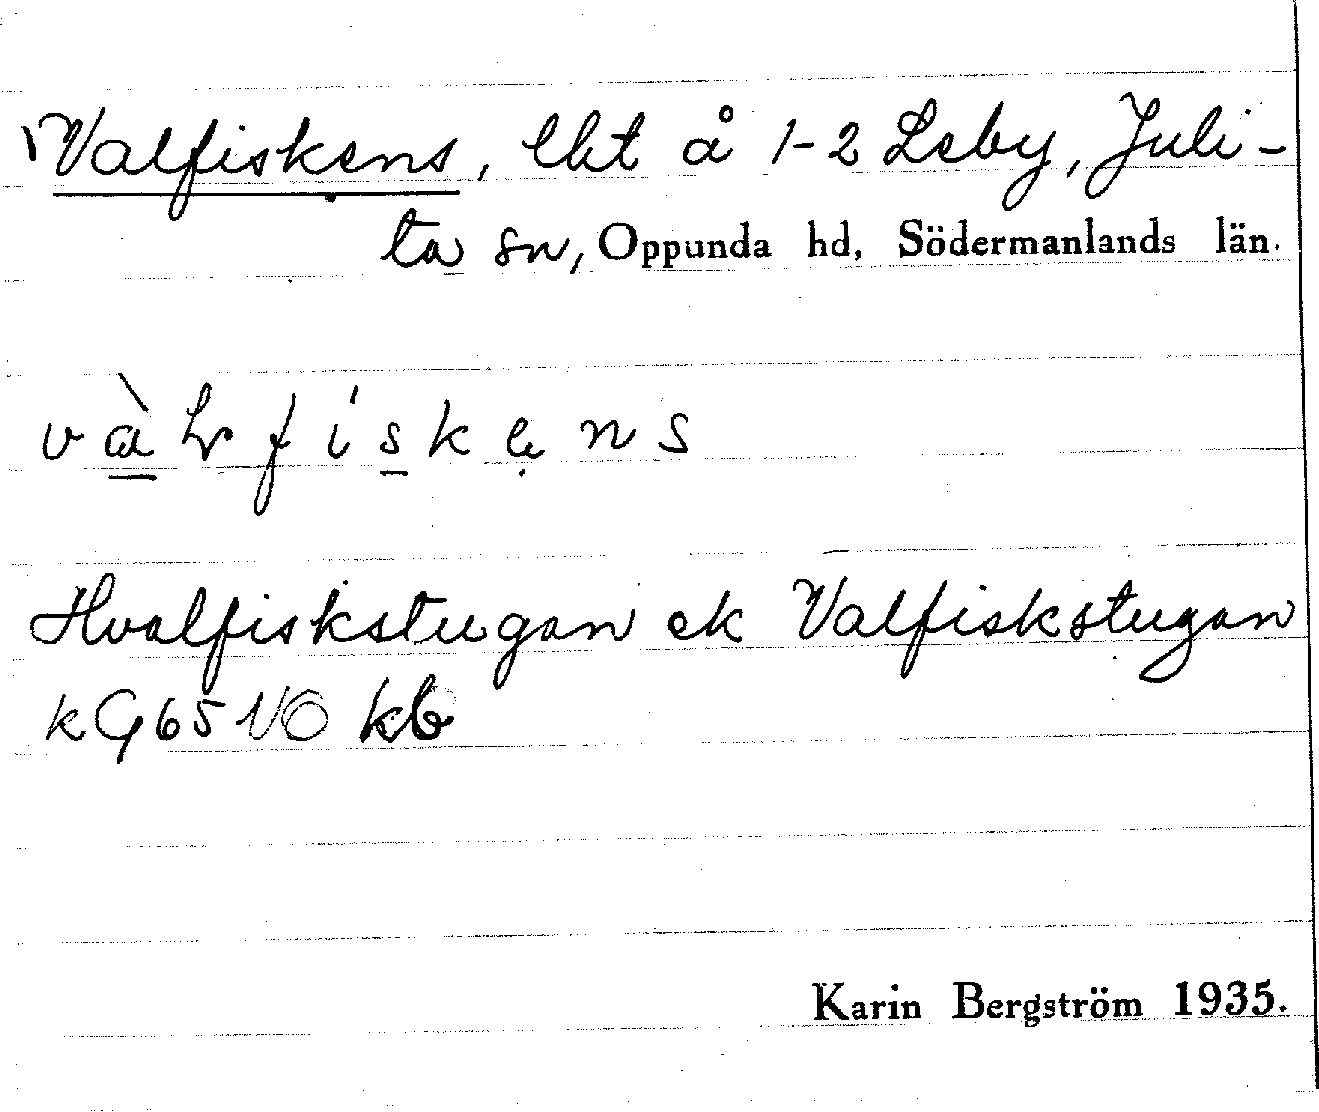 Valfiskens, lht å 1-2 Leby, Juli-
ta sn, Oppunda hd, Södermanlands län.
vàlfiskens
Hvalfiskstugan ek Valfiskstugan
k G 65 NO kb
Karin Bergström 1935.